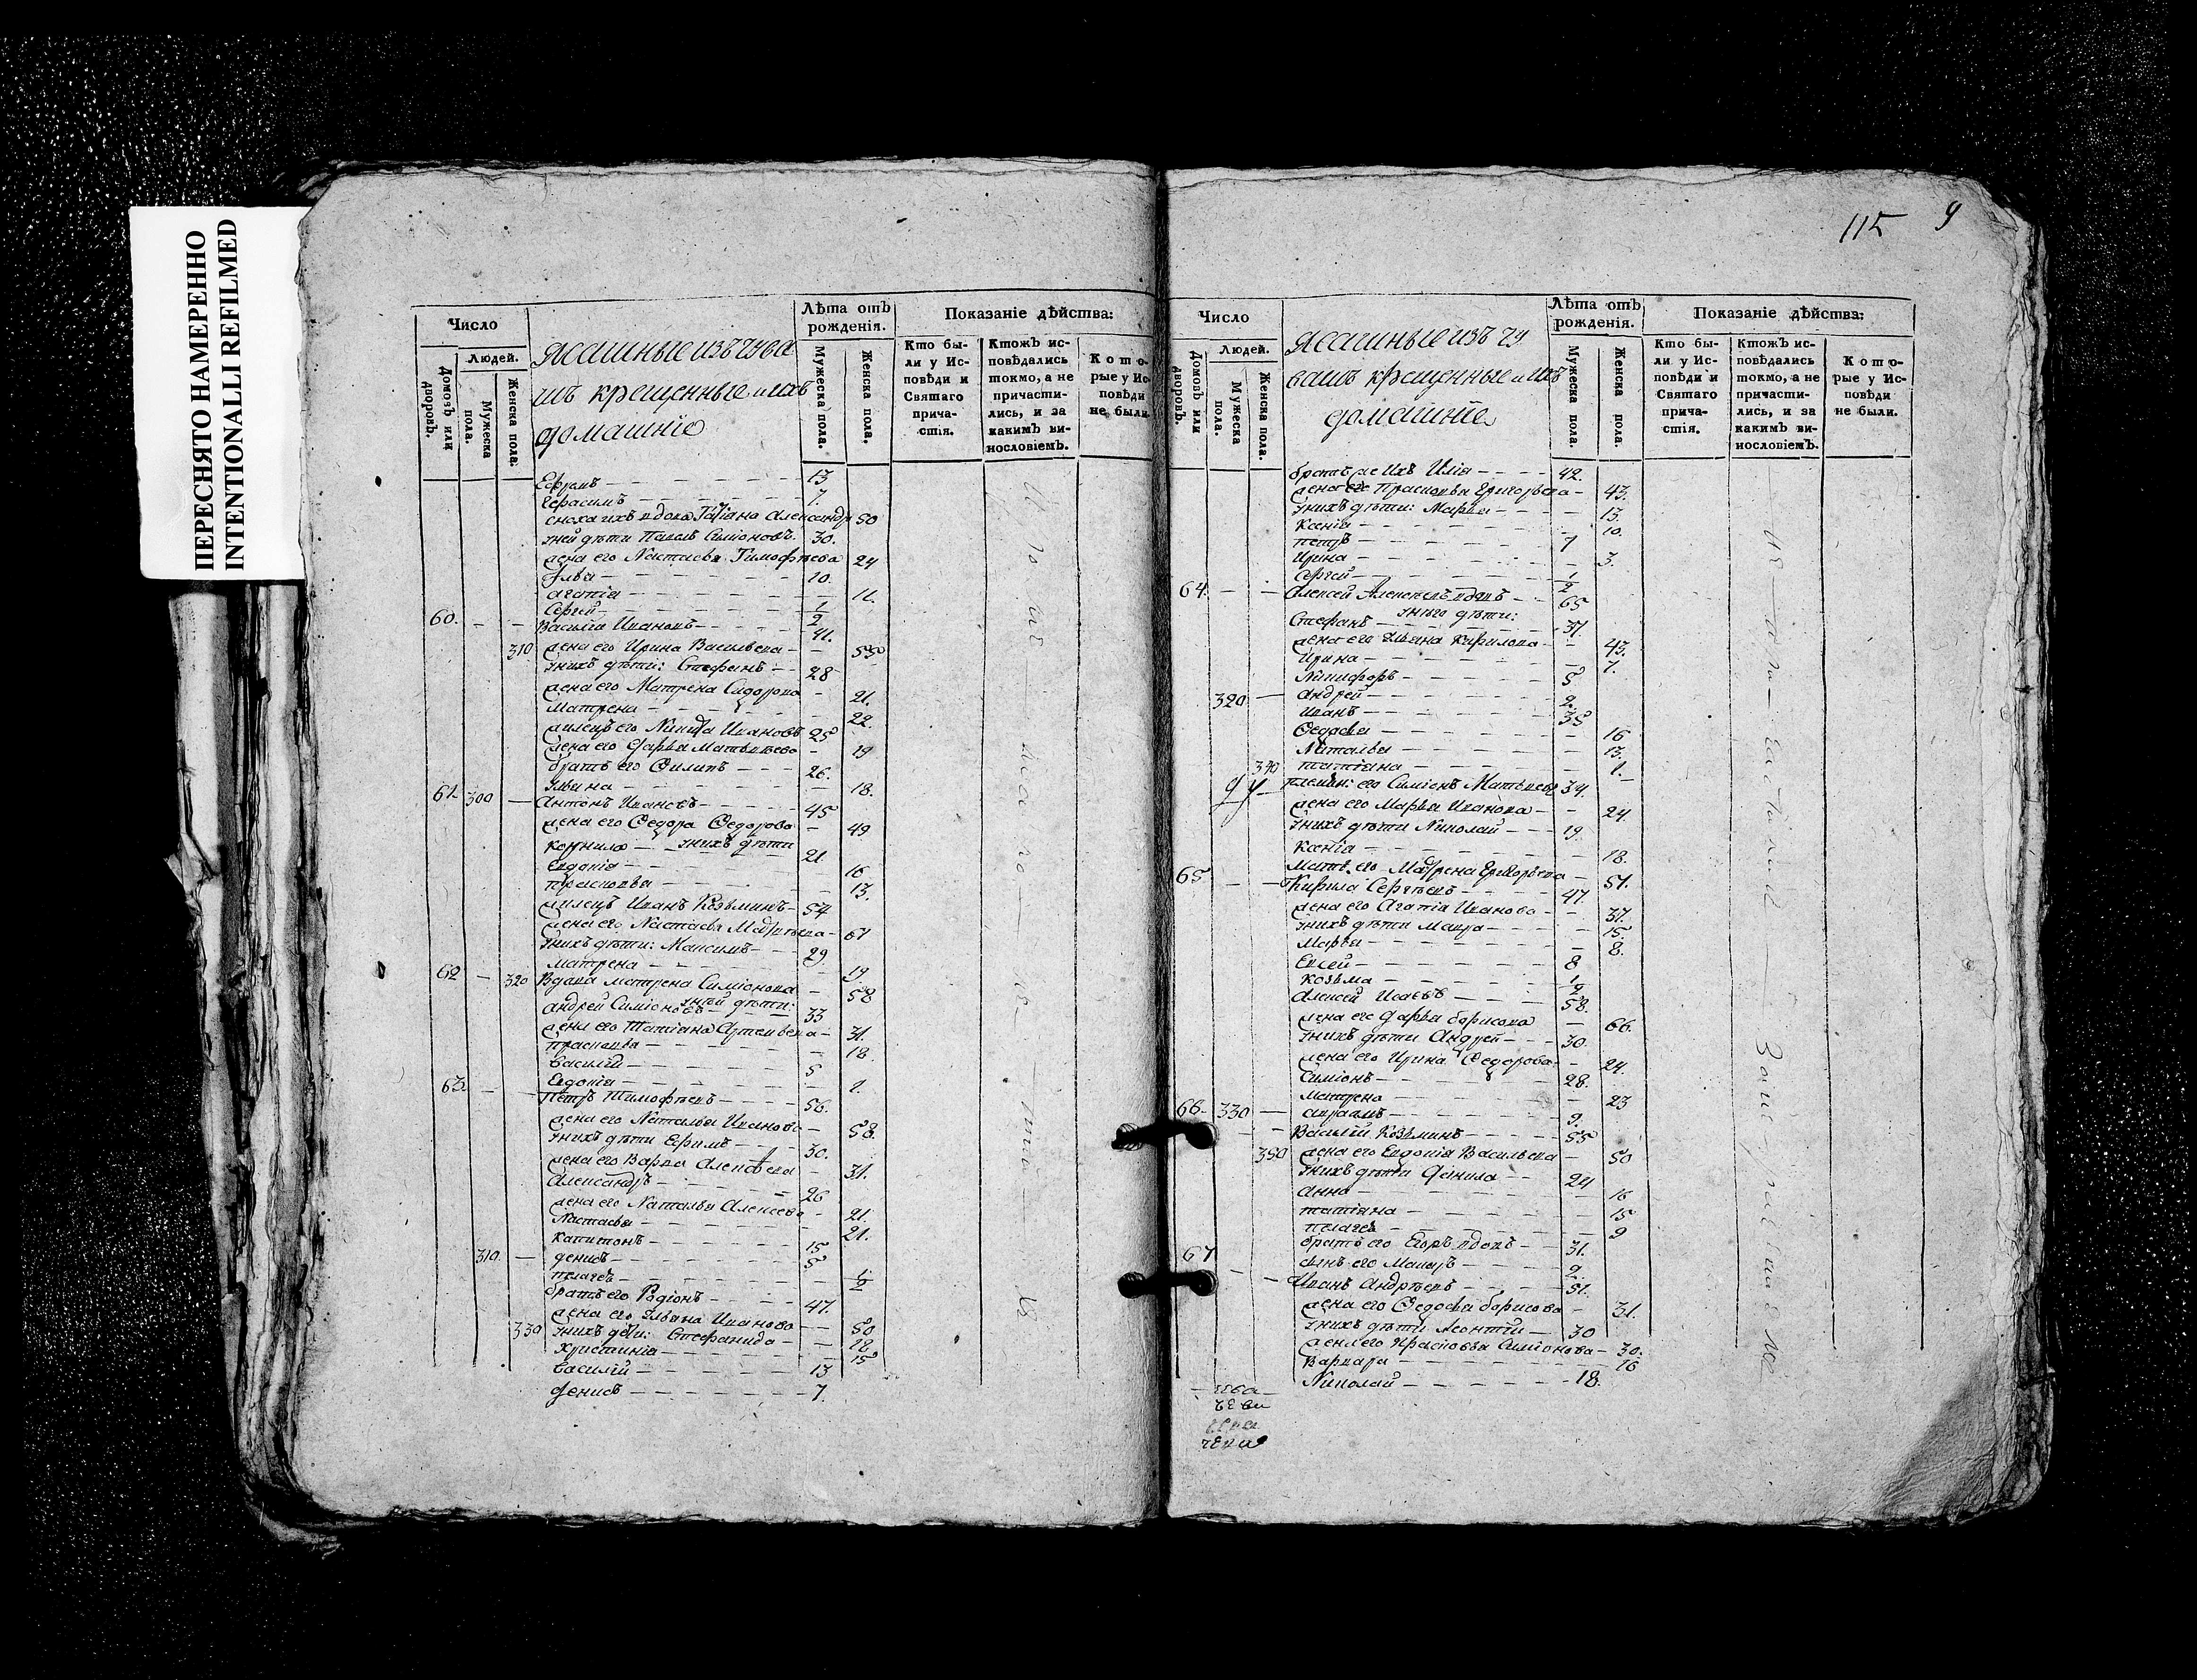 ПЕРЕСНЯТО НАМЕРЕННО
INTENTIONALLI REFILMED
115 9
Число
Людей.
Домовъ или дворовъ.
Мужеска пола.
Женска пола.
Ясашные изъ чува
шъ крещенные и ихъ
домашніе
Лѣта отъ рожденія.
Мужеска пола.
Женска пола.
Показаніе дѣйства:
Кто бы-
ли у Ис-
повѣди и
Святаго
прича-
стія.
Ктожъ ис-
повѣдались
токмо, а не
причасти-
лись, и за
какимъ ви-
нословіемъ.
Кото-
рые у Ис-
повѣди
не были.
Ефремъ 13
Герасимъ 7.
сноха ихъ вдова Татiана Александр 50
у ней дѣти Павелъ Симіоновъ 30.
жена его Настасья Тимофѣева 24
10.
агапіа 11.
Сергей 1/2
60. Василіи Ивановъ 41.
310 жена его Ирина Васильева 55
у нихъ дѣти: Стефанъ 28
жена его Матрена Сидорова 21.
Матрена 22.
его Никита Ивановъ 25
жена его Дарья Матвѣева 19
братъ его Филипъ 26.
Ульяна 18.
61. 300 Антонъ Ивановъ 45
жена его Федора Федорова 49
Корнило у нихъ дѣти 21
Евдокіа 16
Прасковья 13.
Иванъ Козьминъ 54
жена его Настасья 61
у нихъ дѣти: Максимъ 29
Матрена 19
62 320 Вдова Матрена Симіонова 58
у ней дѣти:
Андрей Симіоновъ 33
жена его Татіана Артемьева 31.
Прасковья 18.
Василій 5
Евдокіа 1.
63. Петръ Тимофѣевъ 56.
жена его Наталья Иванова 58.
у нихъ дѣти Ефимъ 30.
жена его Варва Алексѣева 31.
Александръ 26
жена его Наталья Алексеева 21.
Настасья 21.
Капитонъ 15
310 Денисъ 5
Пелагея 1/2
братъ его Родіонъ 47.
жена его Ульяна Иванова 50
330 у нихъ дѣти: Стефанида 18
Христиніа 15
Василій 13
Денисъ 7.
Число
Людей.
Домовъ или дворовъ.
Мужеска пола.
Женска пола.
Ясашные изъ чу
вашъ крещенные и ихъ
домашніе
Лѣта отъ рожденія.
Мужеска пола.
Женска пола.
Показаніе дѣйства:
Кто бы-
ли у Ис-
повѣди и
Святаго
прича-
стія.
Ктожъ ис-
повѣдались
токмо, а не
причасти-
лись, и за
какимъ ви-
нословіемъ.
Кото-
рые у Ис-
повѣди
не были.
братъ же ихъ Иліа 42.
жена его Прасковья Григорьева 43.
у нихъ дѣти: Марья 13.
Ксеніа 10.
Петръ 7
Ирина 3.
Сергей 1/2
64. Алексей Алексеевъ вдовъ 65
у него дѣти:
Стефанъ 37.
жена его Ульяна Кирилова 43.
Ирина 7.
Никифоръ 5
320 Андрей 2.
Иванъ 35
Федосья 16
Наталья 13.
340 Татіана 1.
его Симіонъ Матвѣевъ 34.
жена его Марья Иванова 24
у нихъ дѣти Николай 19.
Ксеніа 18.
Мать его Матрена Григорьева 51.
65 Кирила Сергѣевъ 47.
жена его Агапіа Иванова 37.
у нихъ дѣти Мавра 15.
Марья 8.
Евсей 8
Козьма 1/2
Алексей Исаевъ 58.
жена его Дарья Борисова 66.
у нихъ дѣти Андрей 30.
жена его Ирина Федорова 24.
Симіонъ 28.
Матрена 23
66. 330 Авраамъ 9.
Василій Козьминъ 55
350 жена его Евдокіа Васильева 50
у нихъ дѣти Данила 24
Анна 16
Татіана 15
Пелагея 9
братъ его Егоръ вдовъ 31.
67 сынъ его Макаръ 2.
Иванъ Андрѣевъ 51.
жена его Федосья Борисова 31.
у нихъ дѣти Леонтій 30
жена его Прасковья Симіонова 30.
Варвара 16
Николай 18.